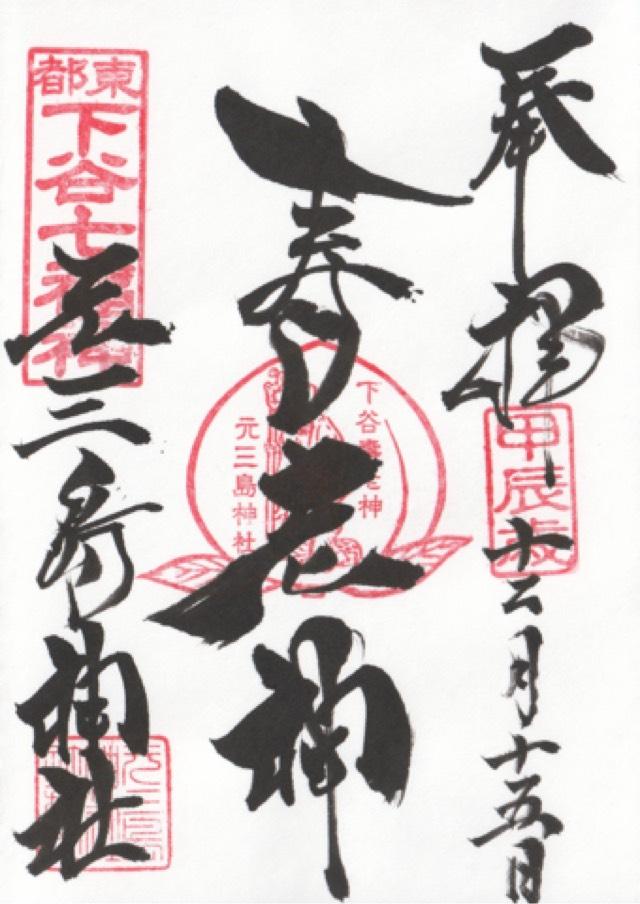 奉拝
甲辰歳
十二月十五日
壽老神
下谷壽老神
元三島神社
東都
下谷七福神
元三島神社